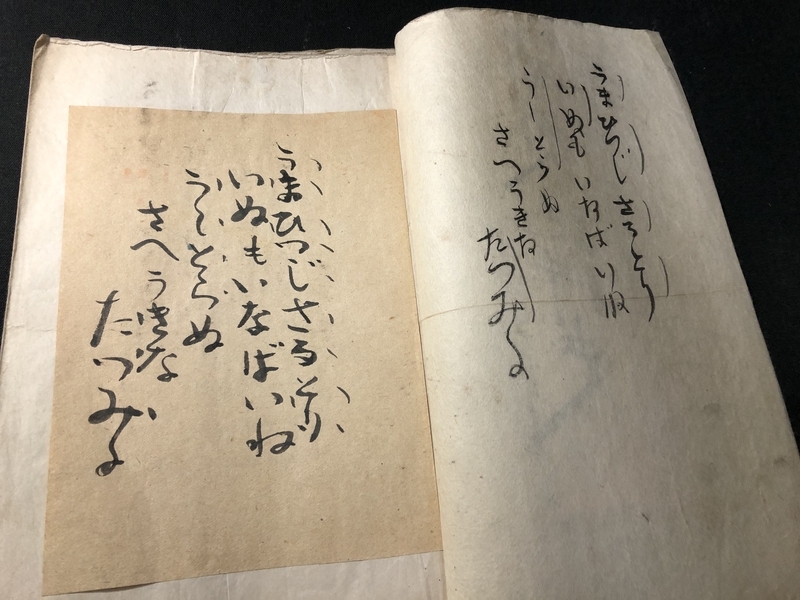 うまひつじさるとり
いぬもいなばいね
うしとらぬ
さへうきな
たつみよ
うまひつじさるとり
いぬもいなばいね
うしとらぬ
さへうきな
たつみよ